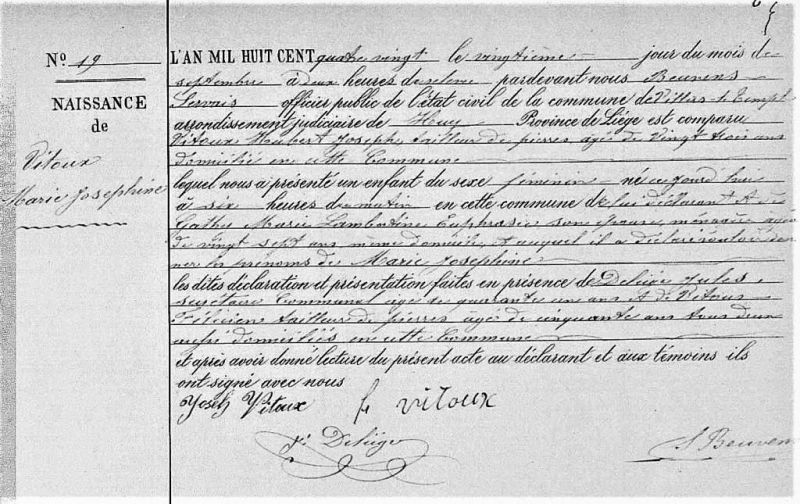 N.º 19
NAISSANCE
de
Vitoux
Marie Josephine
L'AN MIL HUIT CENT quatre vingt le vingtième jour du mois de
septembre à deux heures de relevée pardevant nous Beuvens
Servais officier public de l'état civil de la commune de Villers le Templ
arrondissement judiciaire de Huy Province de Liége est comparu
Vitoux Hubert Joseph tailleur de pierres agé de Vingt trois ans
domicilié en cette Commune
lequel nous a présenté un enfant du sexe féminin né ce jourd'hui
à six heures du matin en cette commune de lui déclarant et de
Gathy Marie Lambertine Euphrasie son épouse, ménagère agée
de vingt sept ans même domicile, et auquel il a déclaré vouloir don
ner les prénoms de Marie Josephine
les dites déclaration et présentation faites en présence de Deliége Jules
secrétaire Communal agé de quarante un ans et de Vitoux
Félicien tailleur de pierres agé de cinquante ans tous deux
domiciliés en cette Commune
et après avoir donné lecture du présent acte au déclarant et aux témoins ils
ont signé avec nous
Joseph Vitoux f vitoux
J. Deliége
S Beuvens